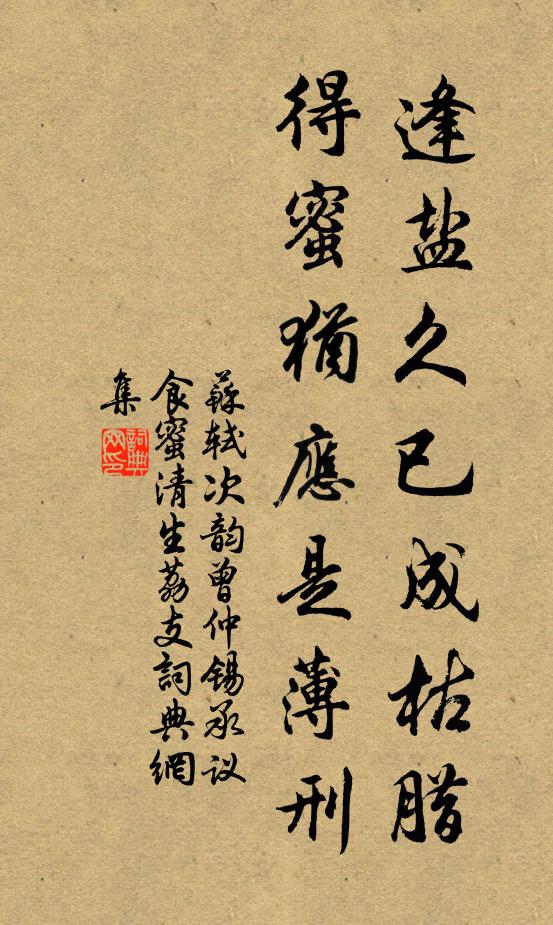 逢盐久已成枯腊
得蜜犹應是薄刑
蘇軾次韵曾仲锡承议
食蜜清生荔支詞典網
集
詞典網印